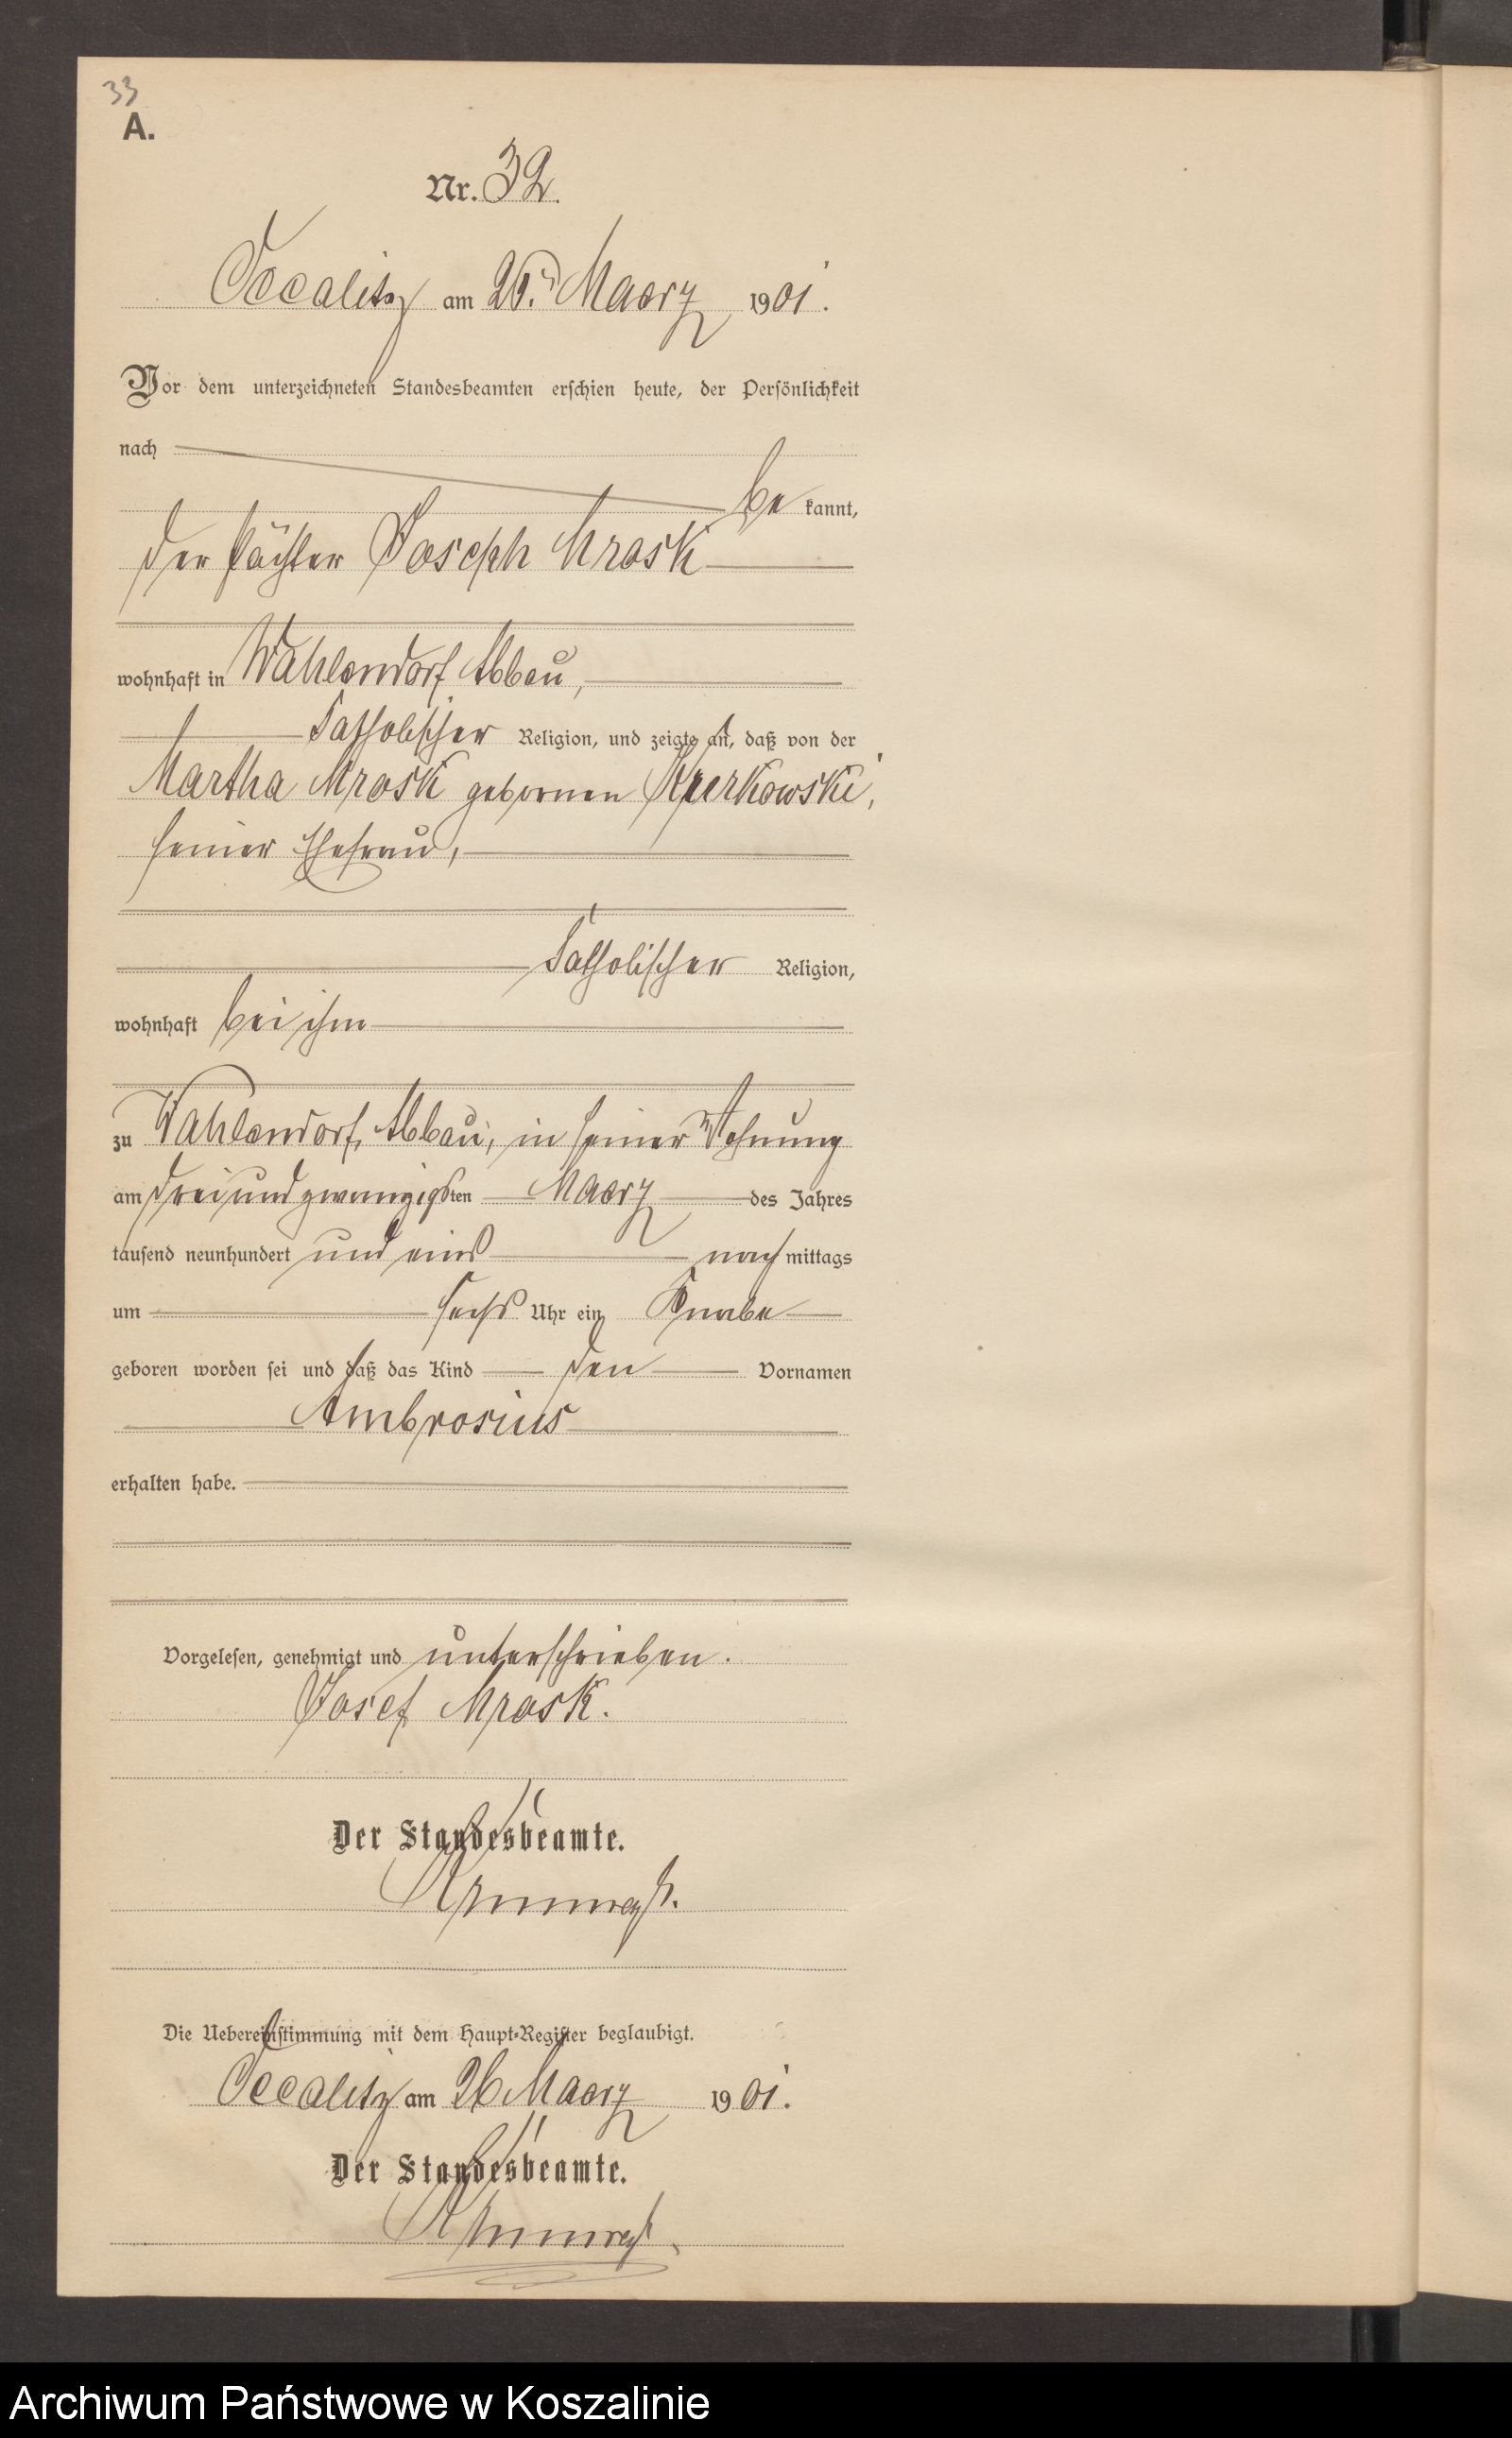 33
A.
Nr. 32.
Occalitz am 26. Maerz 1901.
Vor dem unterzeichneten Standesbeamten erschien heute, der Persönlichkeit
nach
be kannt,
der Pächter Joseph Mrosk
wohnhaft in Wahlendorf Abbau,
katholischer Religion, und zeigte an, daß von der
Martha Mrosk gebornen
seiner Ehefrau,
katholischer Religion,
wohnhaft bei ihm
zu Wahlendorf, Abbau, in seiner Wohnung
am dreiundzwanzigsten Maerz des Jahres
tausend neunhundert und eins nachmittags
um sechs Uhr ein Knabe
geboren worden sei und daß das Kind den Vornamen
Ambrosius
erhalten habe.
Vorgelesen, genehmigt und unterschrieben.
Josef Mrosk.
Der Standesbeamte.
Die Uebereinstimmung mit dem Haupt-Register beglaubigt.
Occalitz am 26 Maerz 1901.
Der Standesbeamte.
Archiwum Państwowe w Koszalinie